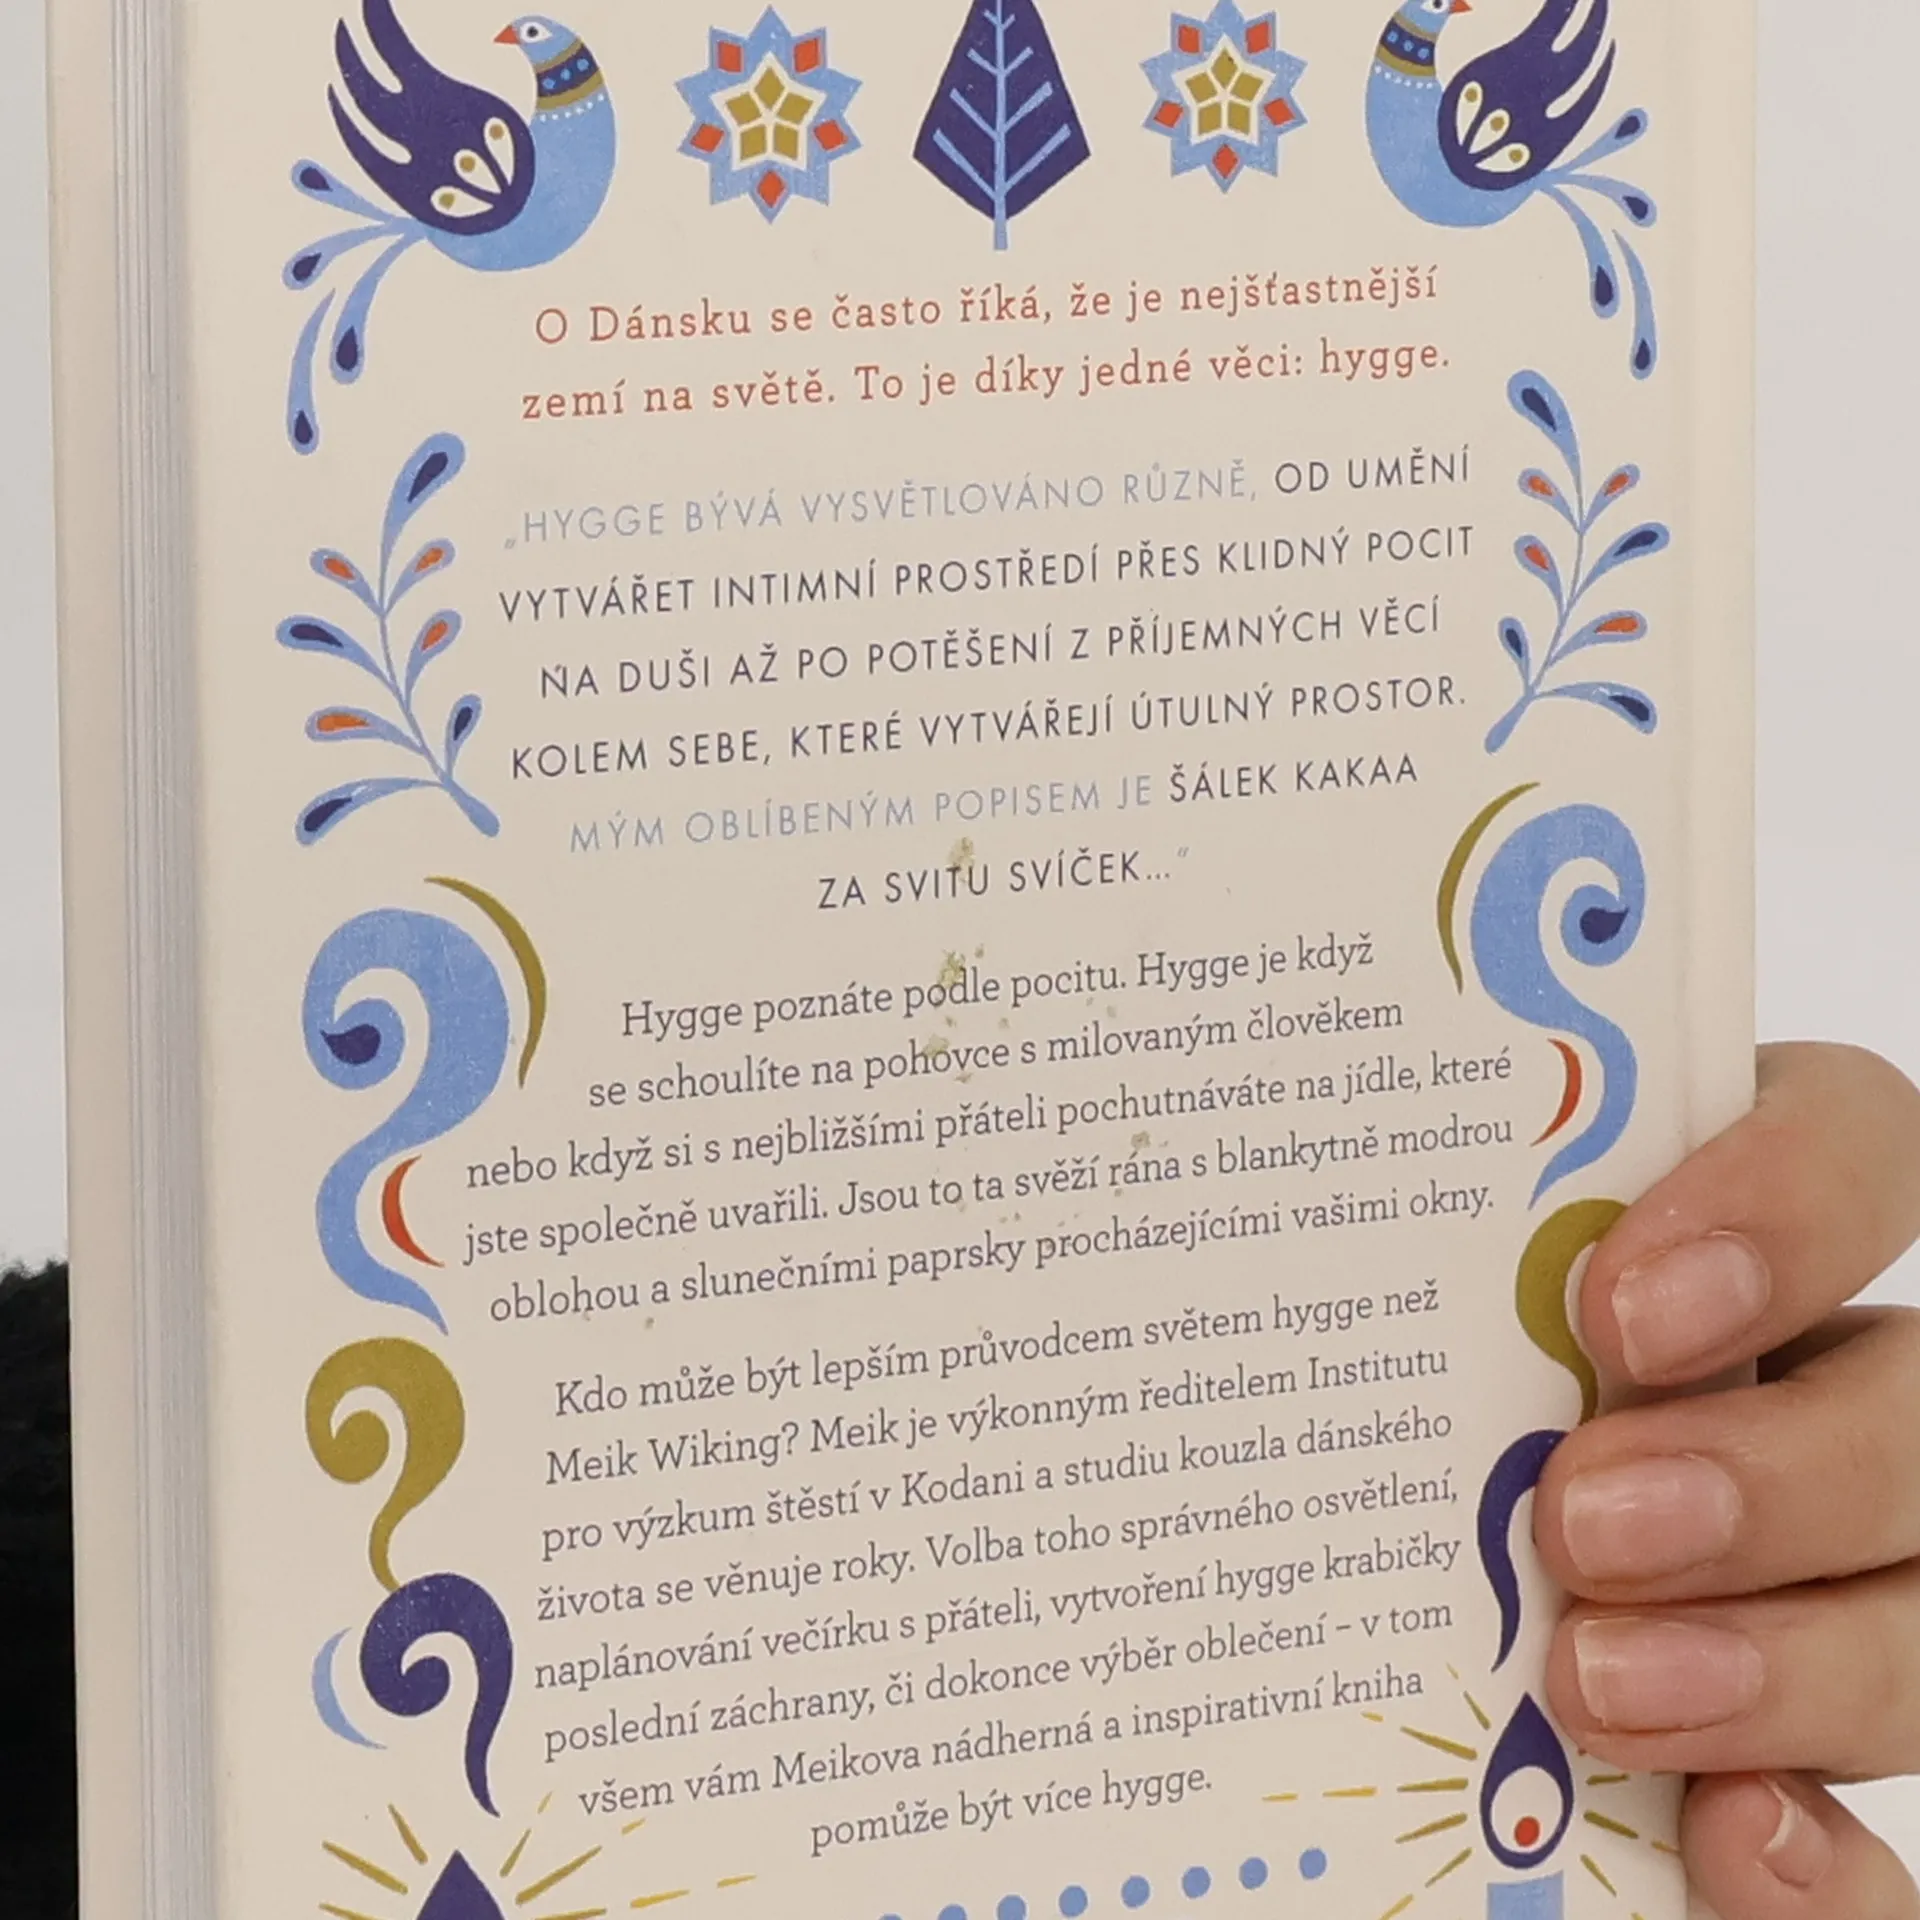 O Dánsku se často říká, že je nejšťastnější
zemí na světě. To je díky jedné věci: hygge.
„HYGGE BÝVÁ VYSVĚTLOVÁNO RŮZNĚ, OD UMĚNÍ
VYTVÁŘET INTIMNÍ PROSTŘEDÍ PŘES KLIDNÝ POCIT
NA DUŠI AŽ PO POTĚŠENÍ Z PŘÍJEMNÝCH VĚCÍ
KOLEM SEBE, KTERÉ VYTVÁŘEJÍ ÚTULNÝ PROSTOR.
MÝM OBLÍBENÝM POPISEM JE ŠÁLEK KAKAA
ZA SVITU SVÍČEK…“
Hygge poznáte podle pocitu. Hygge je když
se schoulíte na pohovce s milovaným člověkem
nebo když si s nejbližšími přáteli pochutnáváte na jídle, které
jste společně uvařili. Jsou to ta svěží rána s blankytně modrou
oblohou a slunečními paprsky procházejícími vašimi okny.
Kdo může být lepším průvodcem světem hygge než
Meik Wiking? Meik je výkonným ředitelem Institutu
pro výzkum štěstí v Kodani a studiu kouzla dánského
života se věnuje roky. Volba toho správného osvětlení,
naplánování večírku s přáteli, vytvoření hygge krabičky
poslední záchrany, či dokonce výběr oblečení – v tom
všem vám Meikova nádherná a inspirativní kniha
pomůže být více hygge.